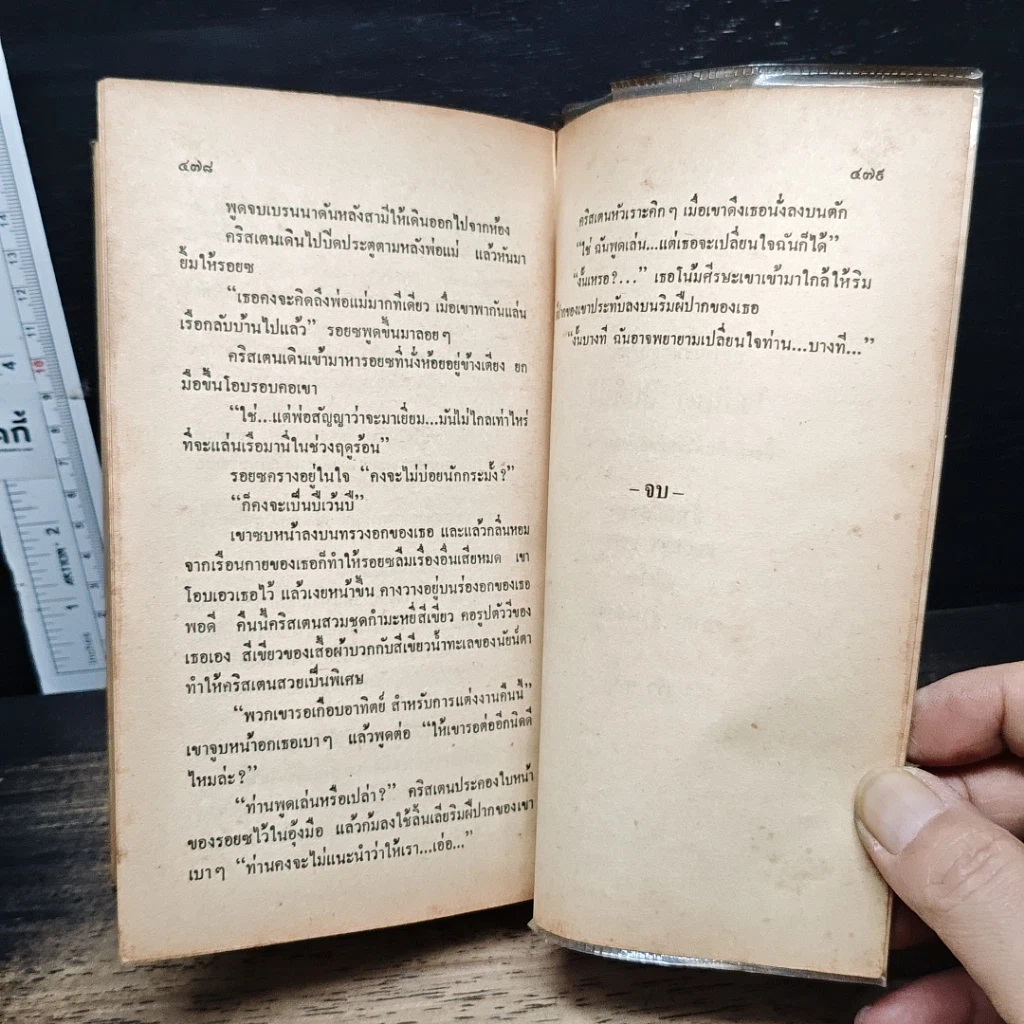 ๔๗๘
พูดจบเบรนนาดันหลังสามีให้เดินออกไปจากห้อง
คริสเตนเดินไปปิดประตูตามหลังพ่อแม่ แล้วหันมา
ยิ้มให้รอยซ
“เธอคงจะคิดถึงพ่อแม่มากทีเดียว เมื่อเขาพากันแล่น
เรือกลับบ้านไปแล้ว” รอยซพูดขึ้นมาลอยๆ
คริสเตนเดินเข้ามาหารอยซที่นั่งห้อยอยู่ข้างเตียง ยก
มือขึ้นโอบรอบคอเขา
“ใช่...แต่พ่อสัญญาว่าจะมาเยี่ยม...มันไม่ไกลเท่าไหร่
ที่จะแล่นเรือมานี่ในช่วงฤดูร้อน”
รอยซครางอยู่ในใจ “คงจะไม่บ่อยนักกระมั้ง?”
“ก็คงจะเป็นปีเว้นปี”
เขาซบหน้าลงบนทรวงอกของเธอ และแล้วกลิ่นหอม
จากเรือนกายของเธอก็ทำให้รอยซลืมเรื่องอื่นเสียหมด เขา
โอบเอวเธอไว้ แล้วเงยหน้าขึ้น คางวางอยู่บนร่องอกของเธอ
พอดี คืนนี้คริสเตนสวมชุดกำมะหยี่สีเขียว คอรูปตัววีของ
เธอเอง สีเขียวของเสื้อผ้าบวกกับสีเขียวน้ำทะเลของนัยน์ตา
ทำให้คริสเตนสวยเป็นพิเศษ
“พวกเขารอเกือบอาทิตย์ สำหรับการแต่งงานคืนนี้”
เขาจูบหน้าอกเธอเบาๆ แล้วพูดต่อ “ให้เขารอต่ออีกนิดดี
ไหมล่ะ?”
“ท่านพูดเล่นหรือเปล่า?” คริสเตนประคองใบหน้า
ของรอยซไว้ในอุ้งมือ แล้วก้มลงใช้ลิ้นเลียริมฝีปากของเขา
เบาๆ “ท่านคงจะไม่แนะนำว่าให้เรา...เอ่อ...”
๔๗๙
คริสเตนหัวเราะคิกๆ เมื่อเขาดึงเธอนั่งลงบนตัก
“ใช่ ฉันพูดเล่น...แต่เธอจะเปลี่ยนใจฉันก็ได้”
“งั้นเหรอ?...” เธอโน้มศีรษะเขาเข้ามาใกล้ให้ริม
ฝีปากของเขาประทับลงบนริมฝีปากของเธอ
“งั้นบางที ฉันอาจพยายามเปลี่ยนใจท่าน...บางที...”
– จบ –
4
2
1
ARTION
inches
13
12
11
10
9
8
7
6
5
4
3
2
1